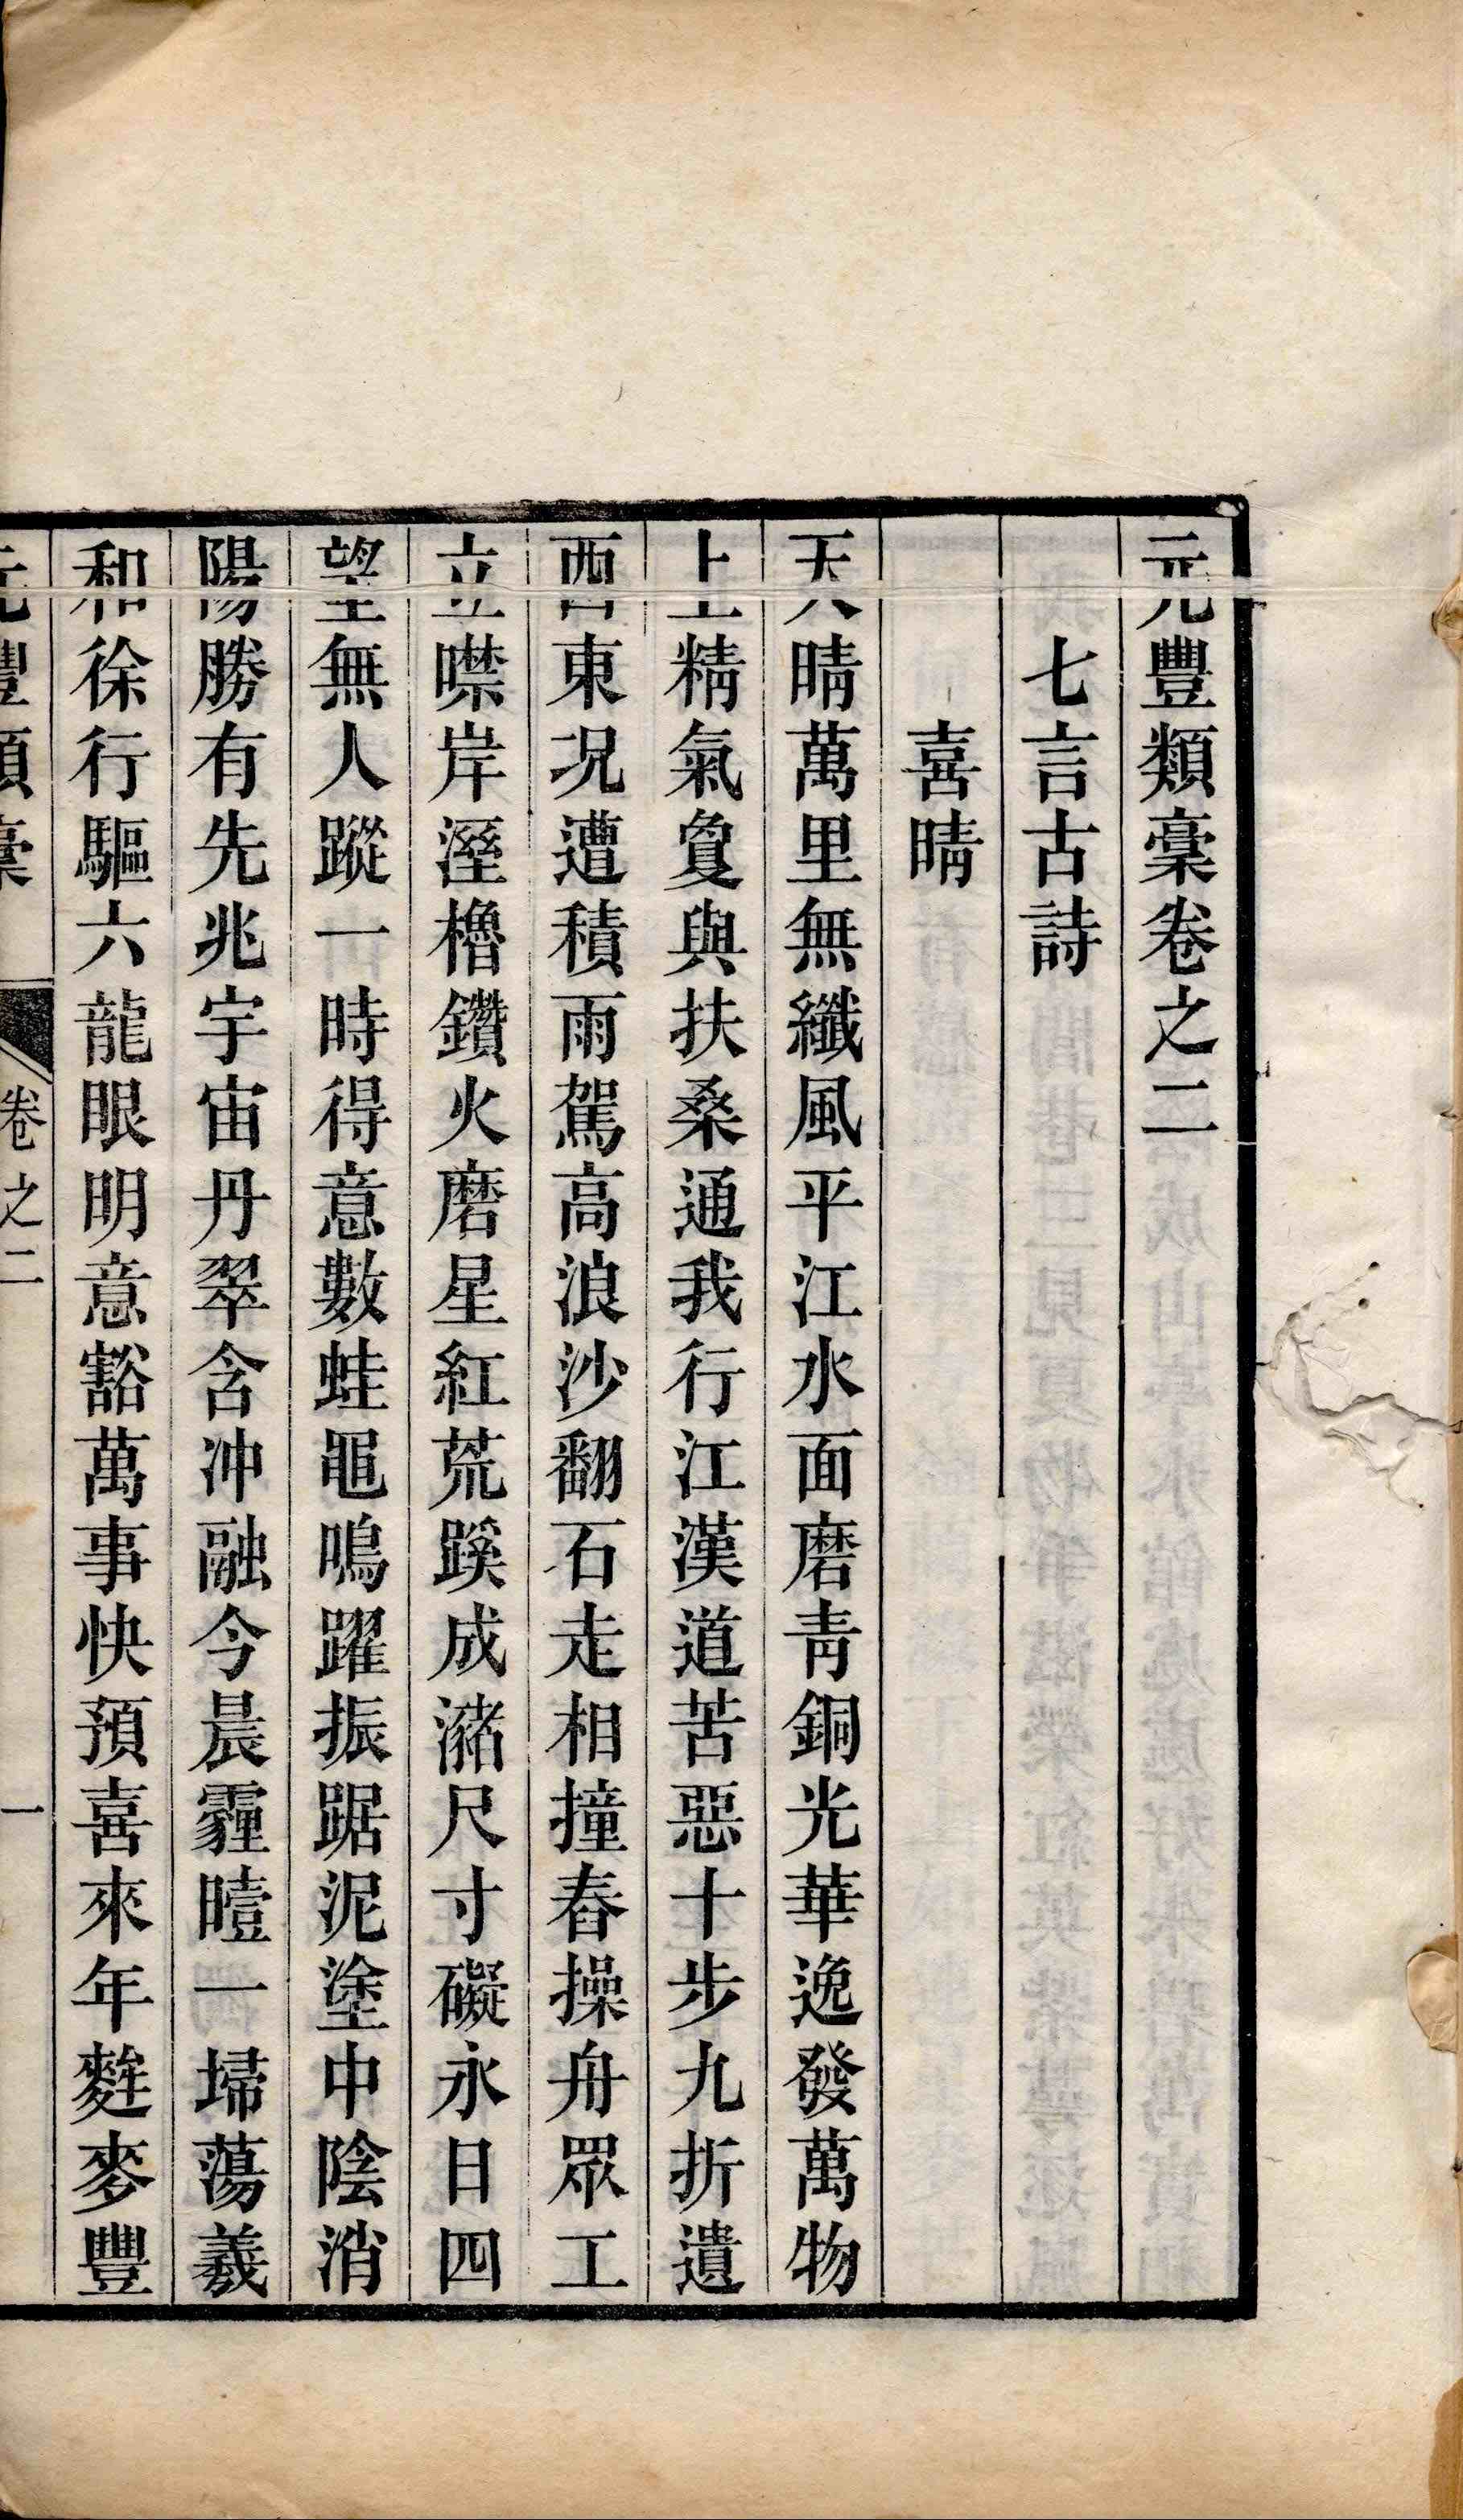 元豐類稾卷之二
七言古詩
喜晴
天晴萬里無纖風平江水面磨靑銅光華逸發萬物
上精氣夐與扶桑通我行江漢道苦惡十步九折遺
西東况遭積雨駕高浪沙翻石走相撞舂操舟眾工
立噤岸溼櫓鑽火磨星紅荒蹊成瀦尺寸礙永日四
望無人蹤一時得意數蛙黽鳴躍振踞泥塗中陰消
陽勝有先兆宇宙丹翠含沖融今晨霾曀一埽蕩羲
和徐行驅六龍眼明意豁萬事快預喜來年麰麥豐
元豐類稾 卷之二 一